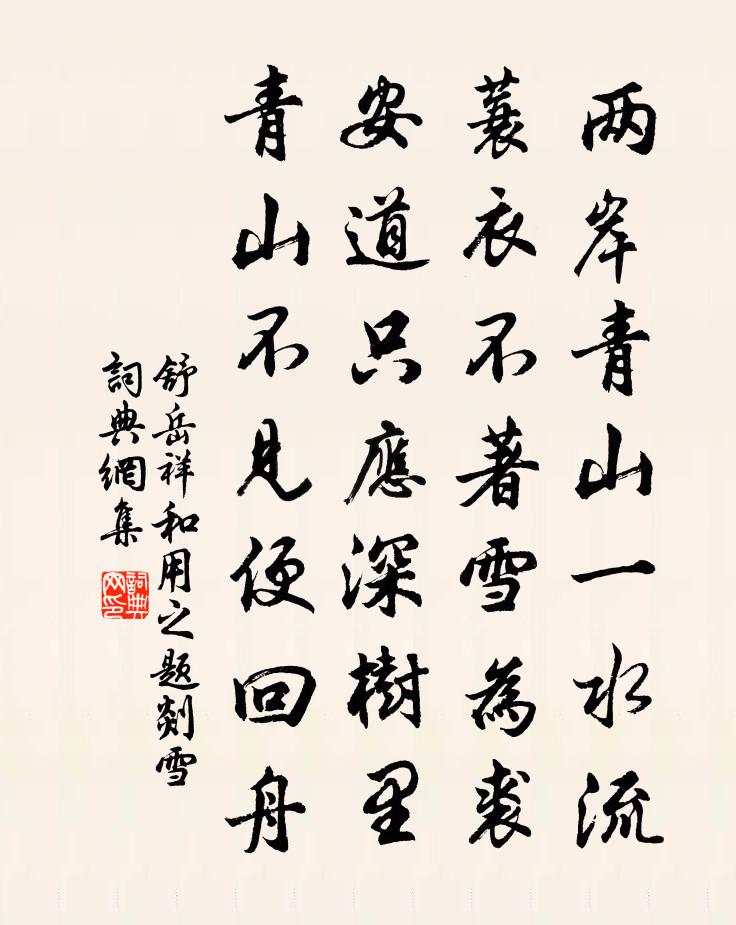 两岸青山一水流
蓑衣不著雪為裘
安道只應深樹里
青山不見便回舟
舒岳祥和用之题剡雪
詞典網集
詞典网印